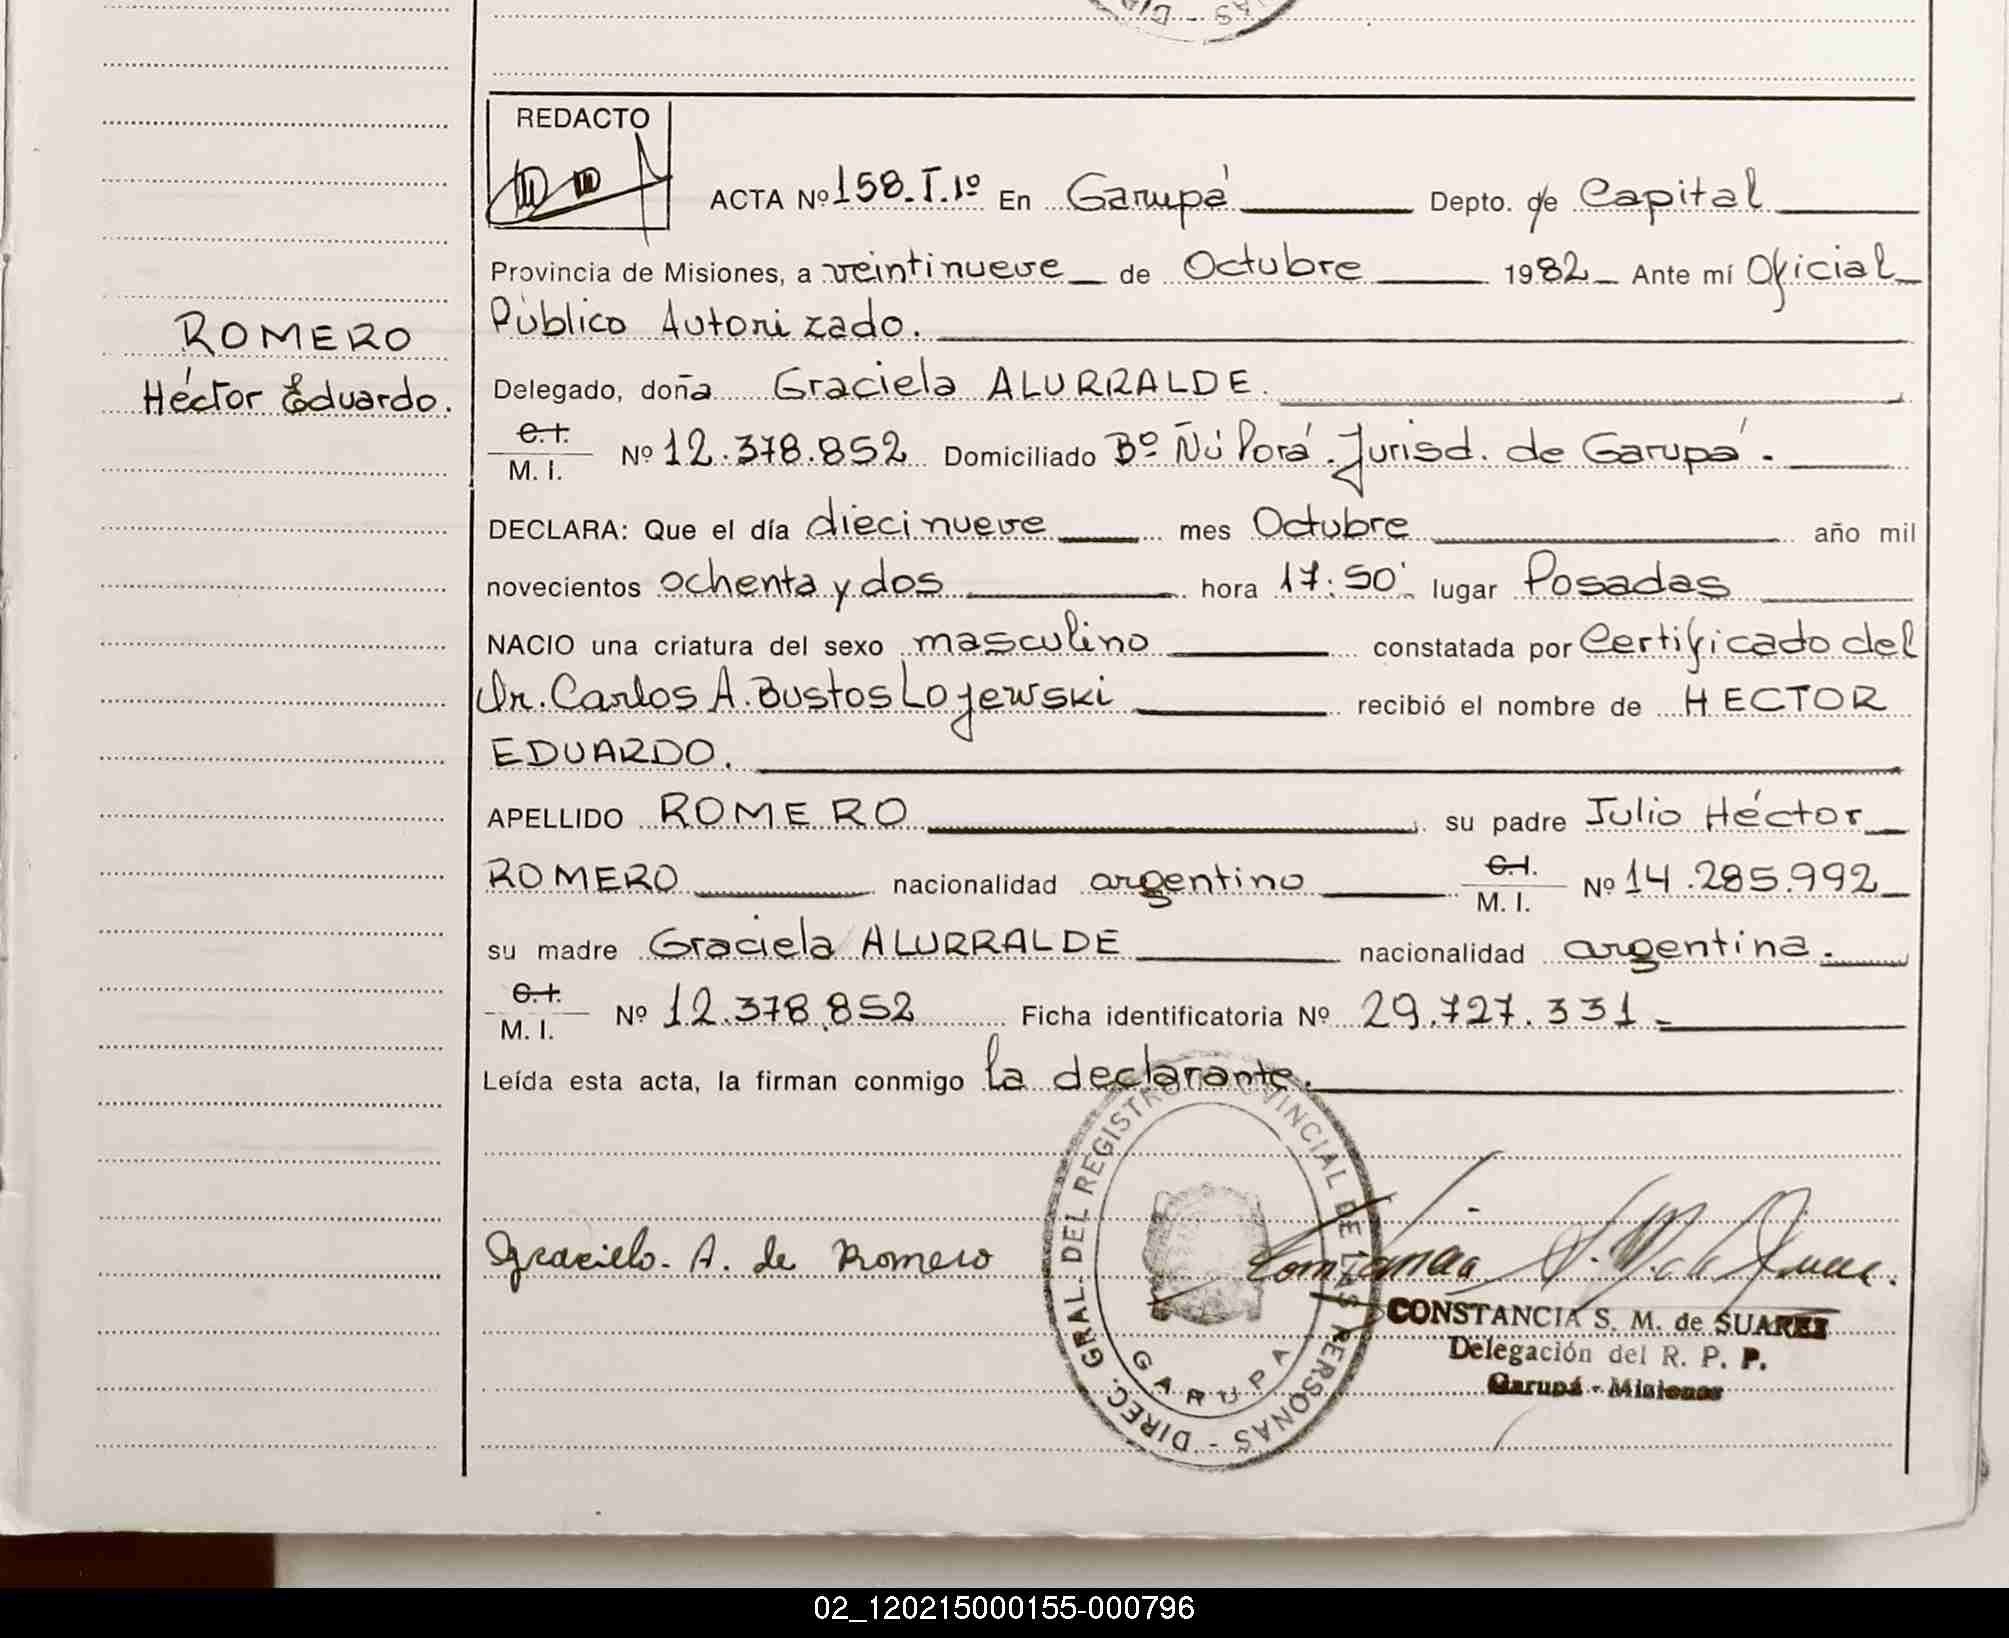 REDACTO
ACTA Nº 158.T.1º En Garupá Depto. de Capital
Provincia de Misiones, a veintinueve de Octubre 1982 Ante mí Oficial
Público Autorizado.
ROMERO
Héctor Eduardo.
Delegado, doña Graciela ALURRALDE.
C.I.
M. I. Nº 12.378.852 Domiciliado Bº Ñú Porá. Jurisd. de Garupá.
DECLARA: Que el día diecinueve mes Octubre año mil
novecientos ochenta y dos hora 17:50' lugar Posadas
NACIO una criatura del sexo masculino constatada por Certificado del
Dr. Carlos A. Bustos Lojewski recibió el nombre de HECTOR
EDUARDO.
APELLIDO ROMERO su padre Julio Héctor
ROMERO nacionalidad argentino C.I. M. I. Nº 14.285.992
su madre Graciela ALURRALDE nacionalidad argentina.
C.I.
M. I. Nº 12.378.852 Ficha identificatoria Nº 29.727.331
Leída esta acta, la firman conmigo la declarante.
DIREC. GRAL. DEL REGISTRO PROVINCIAL DE LAS PERSONAS -
GARUPA
Graciela A. de Romero
CONSTANCIA S. M. de SUAREZ
Delegación del R. P. P.
Garupá - Misiones
02_120215000155-000796